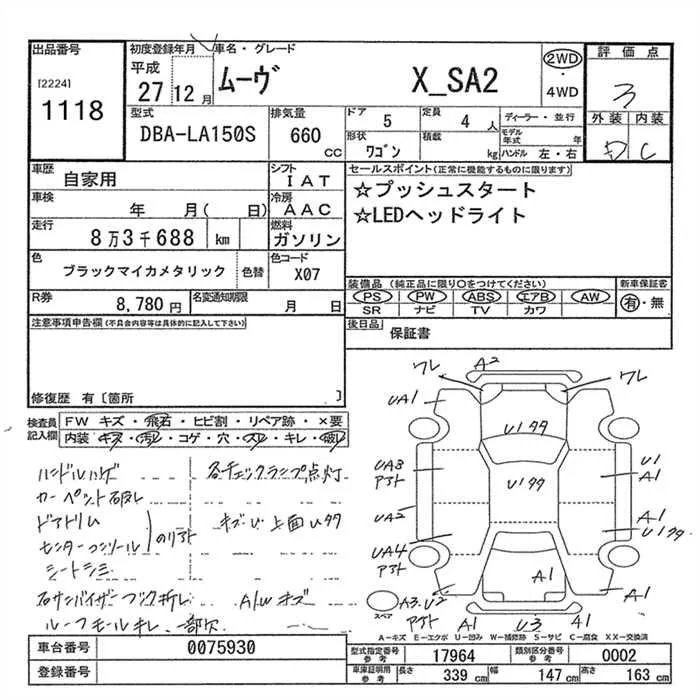 出品番号 初度登録年月 車名・グレード 2WD 評価点
[2224] 平成 ムーヴ X_SA2 ・
1118 27 12月 4WD 3
型式 排気量 ドア 5 定員 4人 ディーラー・並行 外装 内装
DBA-LA150S 660 CC 形状 ワゴン 積載 kg モデル年式 年 D C
ハンドル 左・右
車歴 自家用 シフト IAT セールスポイント(正常に機能するものに限ります)
車検 年 月( 日) 冷房 AAC ☆プッシュスタート
走行 8万3千688 km 燃料 ガソリン ☆LEDヘッドライト
色 ブラックマイカメタリック 色替 色コード X07
装備品(純正品に限り〇をつけてください) 新車保証書
R券 8,780円 名変通知期限 月 日 PS PW ABS エアB AW 有・無
SR ナビ TV カワ
注意事項申告欄(不具合内容等は具体的に記入して下さい) 後日品 保証書
修復歴 有〔箇所 〕
検査員記入欄 FW キズ・飛石・ヒビ割・リペア跡・×要
内装・キズ・汚レ・コゲ・穴・スレ・キレ・破レ
ワレ A2 ワレ
UA1
U1 タタ
UA3 アト U1 タタ U1
A1
UA2 A1
U1 タタ
UA4
アト A1
A3.U2 A1
アト A1 U3 A1
スペア
ハンドルハゲ 各チェックランプ点灯
カーペット破レ
ドアトリム
センターコンソール のリアト キズ
シートシミ
右サンバイザーフック折レ A/W キズ
ルーフモールキレ、一部欠
A-キズ E-エクボ U-凹み W-補修跡 S-サビ C-腐食 XX-交換済
車台番号 0075930 型式指定番号 参考 17964 類別区分番号 参考 0002
登録番号 車庫証明用 参考 長さ 339 cm 幅 147 cm 高さ 163 cm